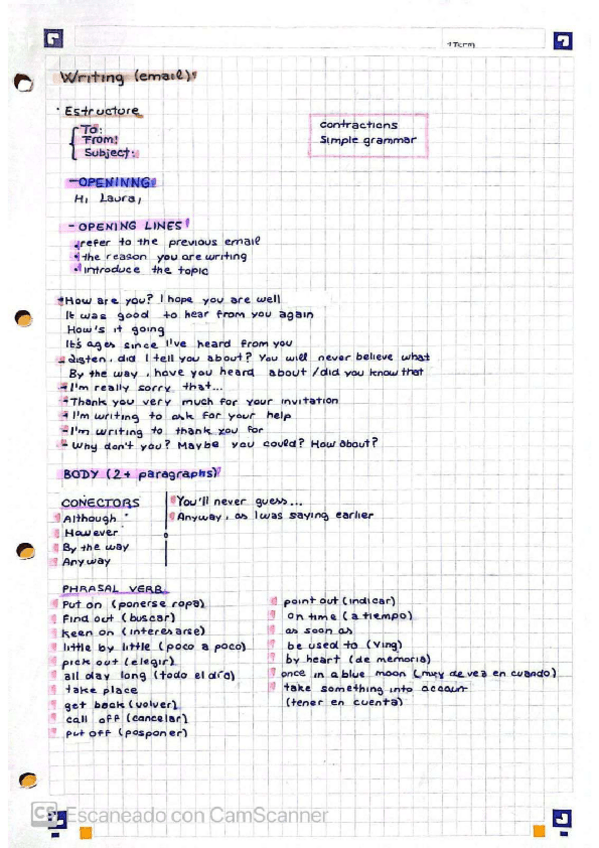 1 Term
Writing (email)
· Estructure
To:
From:
Subject:
Contractions
Simple grammar
- OPENINNG
Hi Laura,
- OPENING LINES
refer to the previous email
the reason you are writing
introduce the topic
How are you? I hope you are well
It was good to hear from you again
How's it going
It's ages since I've heard from you
- Listen, did I tell you about? You will never believe what
By the way, have you heard about / did you know that
I'm really sorry that...
Thank you very much for your invitation
I'm writing to ask for your help
- I'm writing to thank you for
- Why don't you? Maybe you could? How about?
BODY (2+ paragraphs)
CONECTORS
Although
However
By the way
Anyway
You'll never guess...
Anyway, as I was saying earlier
PHRASAL VERB
Put on (ponerse ropa)
Find out (buscar)
keen on (interesarse)
little by little (poco a poco)
pick out (elegir)
all day long (todo el día)
take place
get back (volver)
call off (cancelar)
put off (posponer)
point out (indicar)
on time (a tiempo)
as soon as
be used to (Ving)
by heart (de memoria)
once in a blue moon (muy de vez en cuando)
take something into account
(tener en cuenta)
CS Escaneado con CamScanner